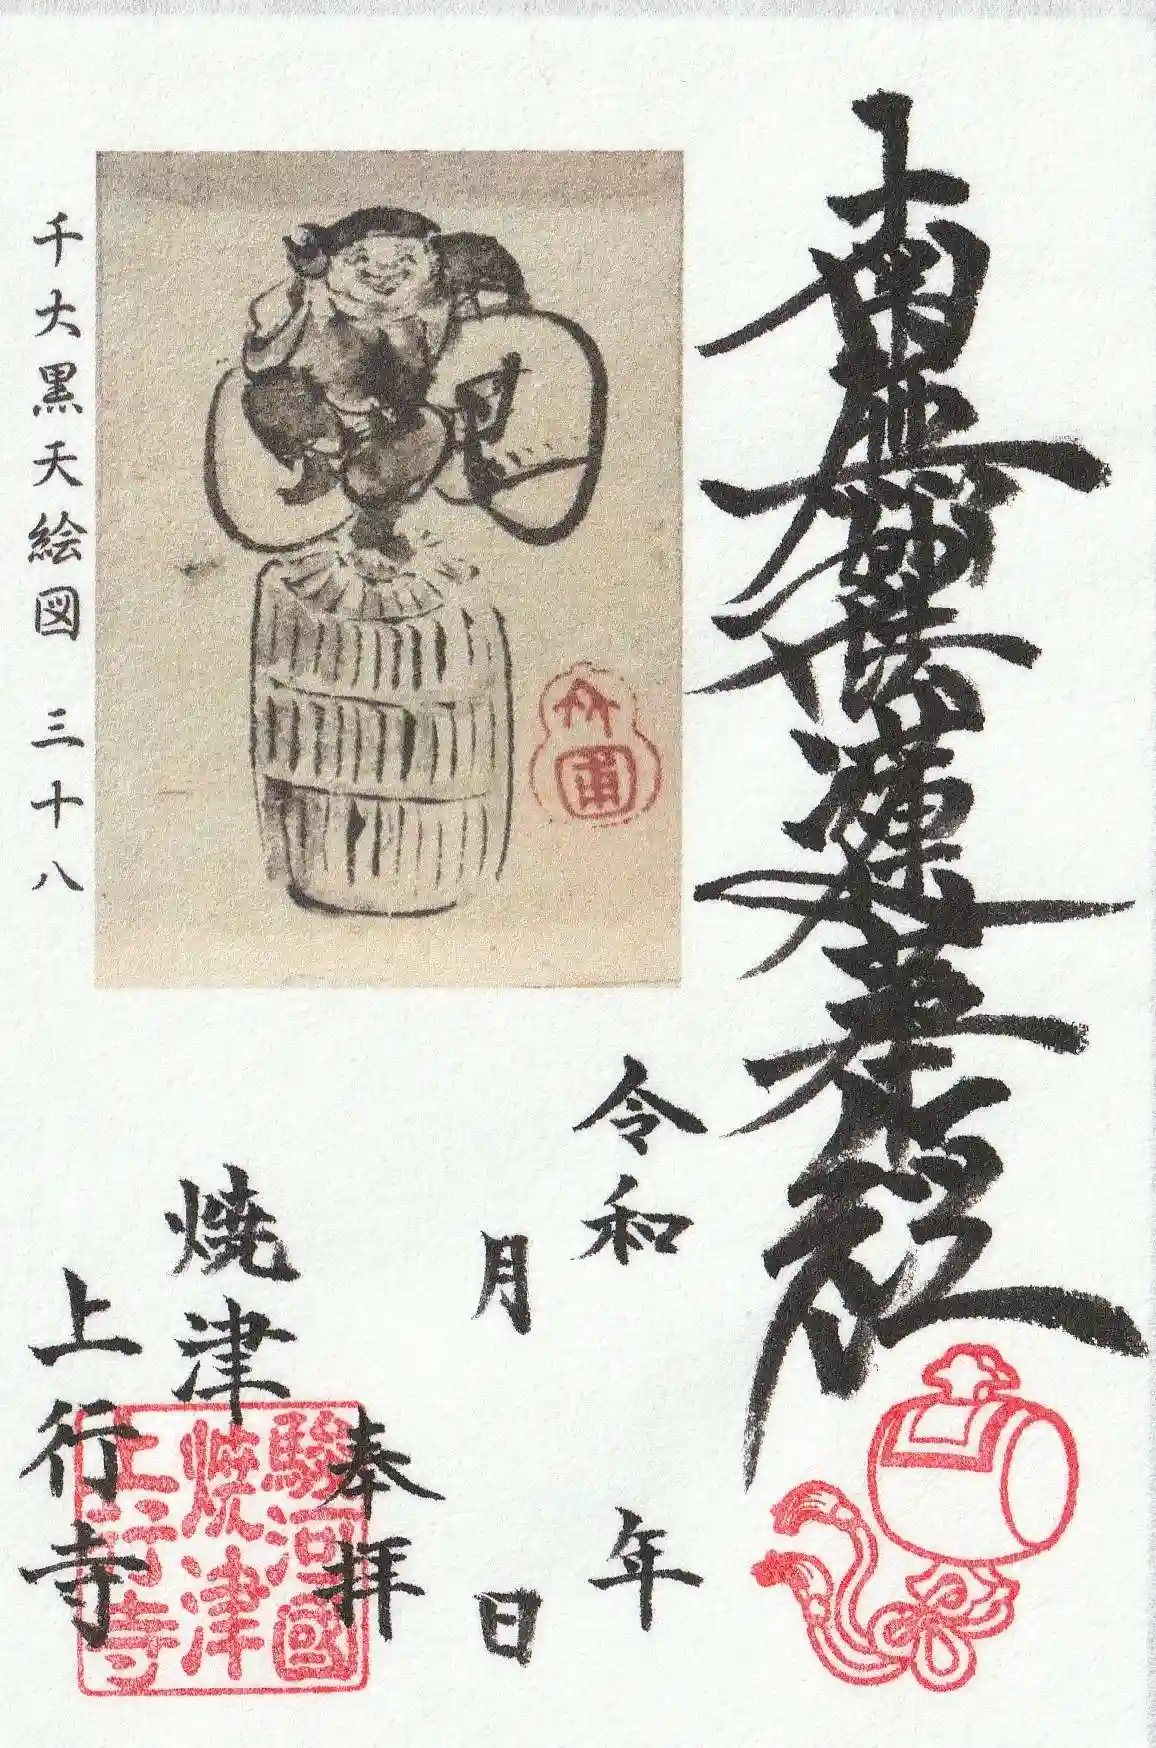 南無妙法蓮華経
令和 年
月 日
奉拝
焼津
上行寺
駿河國
焼津
上行寺
千大黒天絵図 三十八